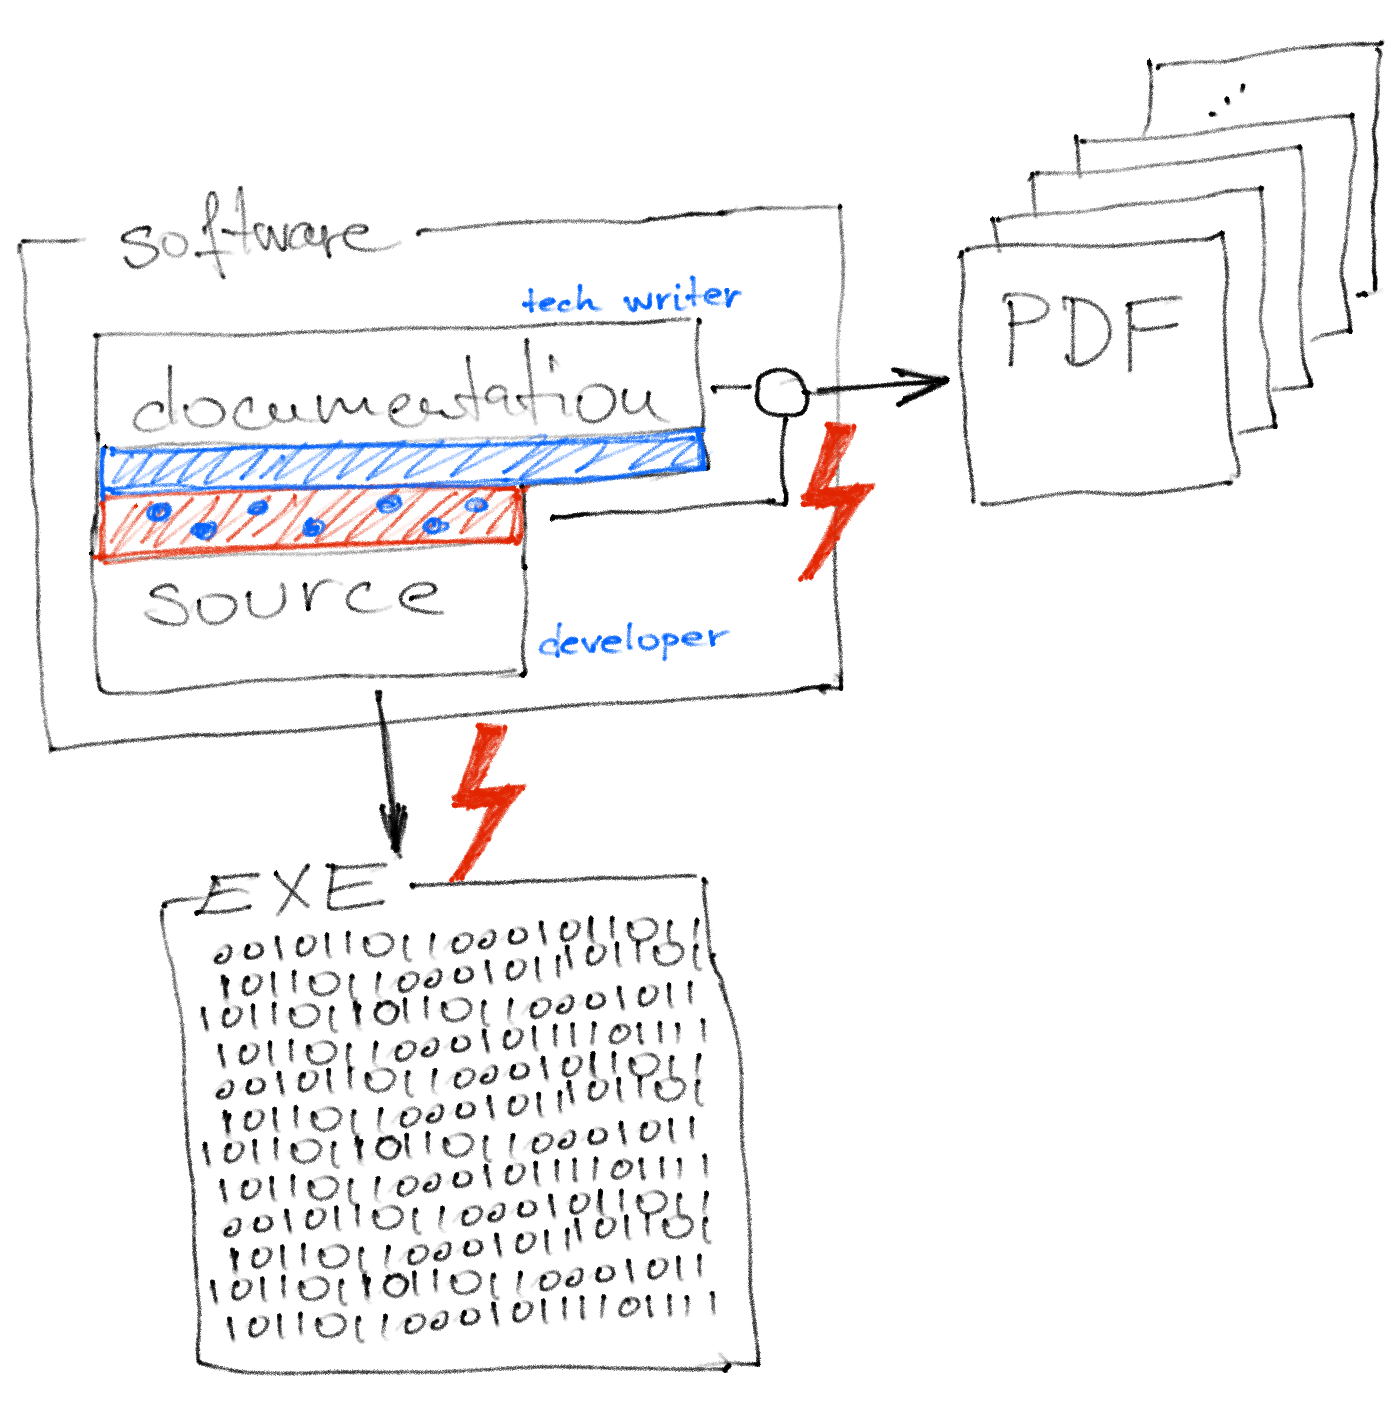 software
tech writer
documentation
PDF
source
developer
EXE
0010110110001011011
10110110001011101101
10110110110110001011
101101100010111101111
0010110110001011011
10110110001011101101
10110110110110001011
101101100010111101111
0010110110001011011
10110110001011101101
10110110110110001011
101101100010111101111